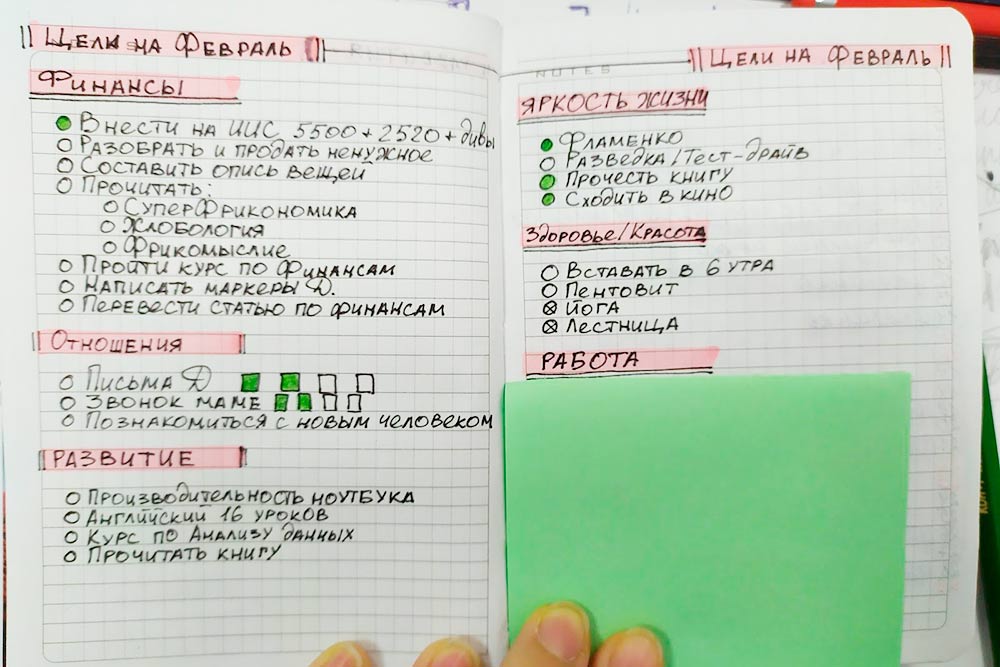 Цели на Февраль
Финансы
Внести на ИИС 5500 + 2520 + дивы
Разобрать и продать ненужное
Составить опись вещей
Прочитать:
Суперфрикономика
Жлобология
Фрикомыслие
Пройти курс по финансам
Написать маркеры Д.
Перевести статью по финансам
Отношения
Письма Д
Звонок маме
Познакомиться с новым человеком
Развитие
Производительность ноутбука
Английский 16 уроков
Курс по Анализу данных
Прочитать книгу
NOTES
Цели на Февраль
Яркость жизни
Фламенко
Разведка/Тест-драйв
Прочесть книгу
Сходить в кино
Здоровье/Красота
Вставать в 6 утра
Пентовит
Йога
Лестница
Работа